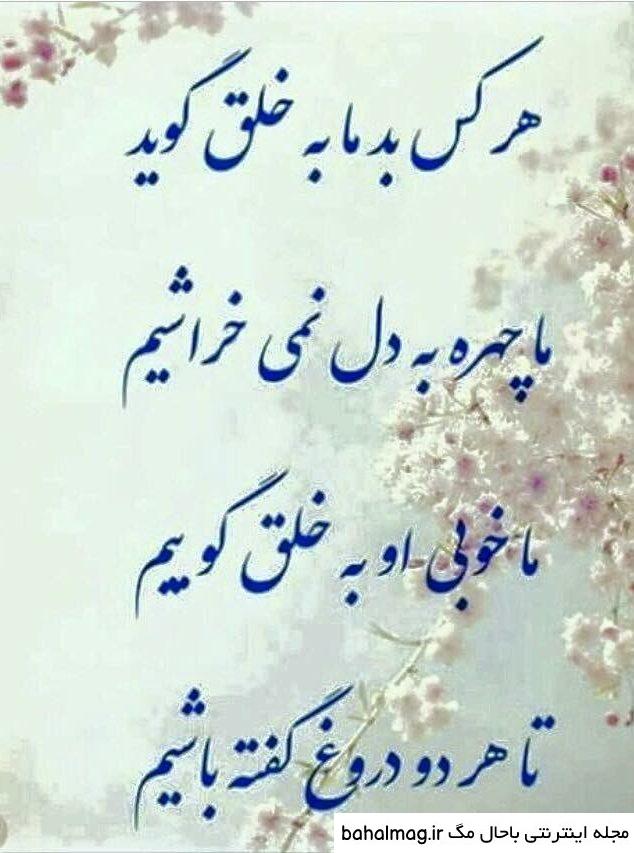 هر کس بد ما به خلق گوید
ما چهره به دل نمی خراشیم
ما خوبی او به خلق گوییم
تا هر دو دروغ گفته باشیم
مجله اینترنتی باحال مگ bahalmag.ir